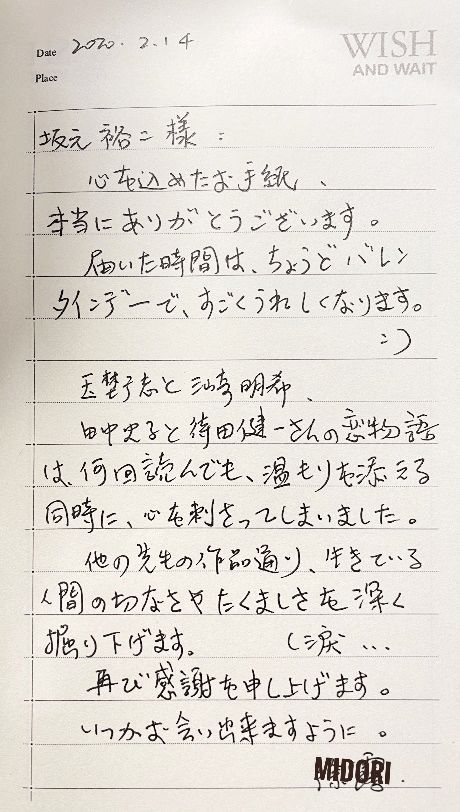 Date 2020.2.14
WISH
AND WAIT
Place
坂元 裕二 様：
心を込めたお手紙、
本当にありがとうございます。
届いた時間は、ちょうどバレン
タインデーで、すごくうれしくなります。
:)
玉埜広志と三崎明希、
田中史子と待田健一さんの恋物語
は、何回読んでも、温もりを添える
同時に、心も刺さってしまいました。
他の先生の作品通り、生きている
人間の切なさやたくましさを深く
掘り下げます。 (涙...
再び感謝を申し上げます。
いつかお会い出来ますように。
MIDORI